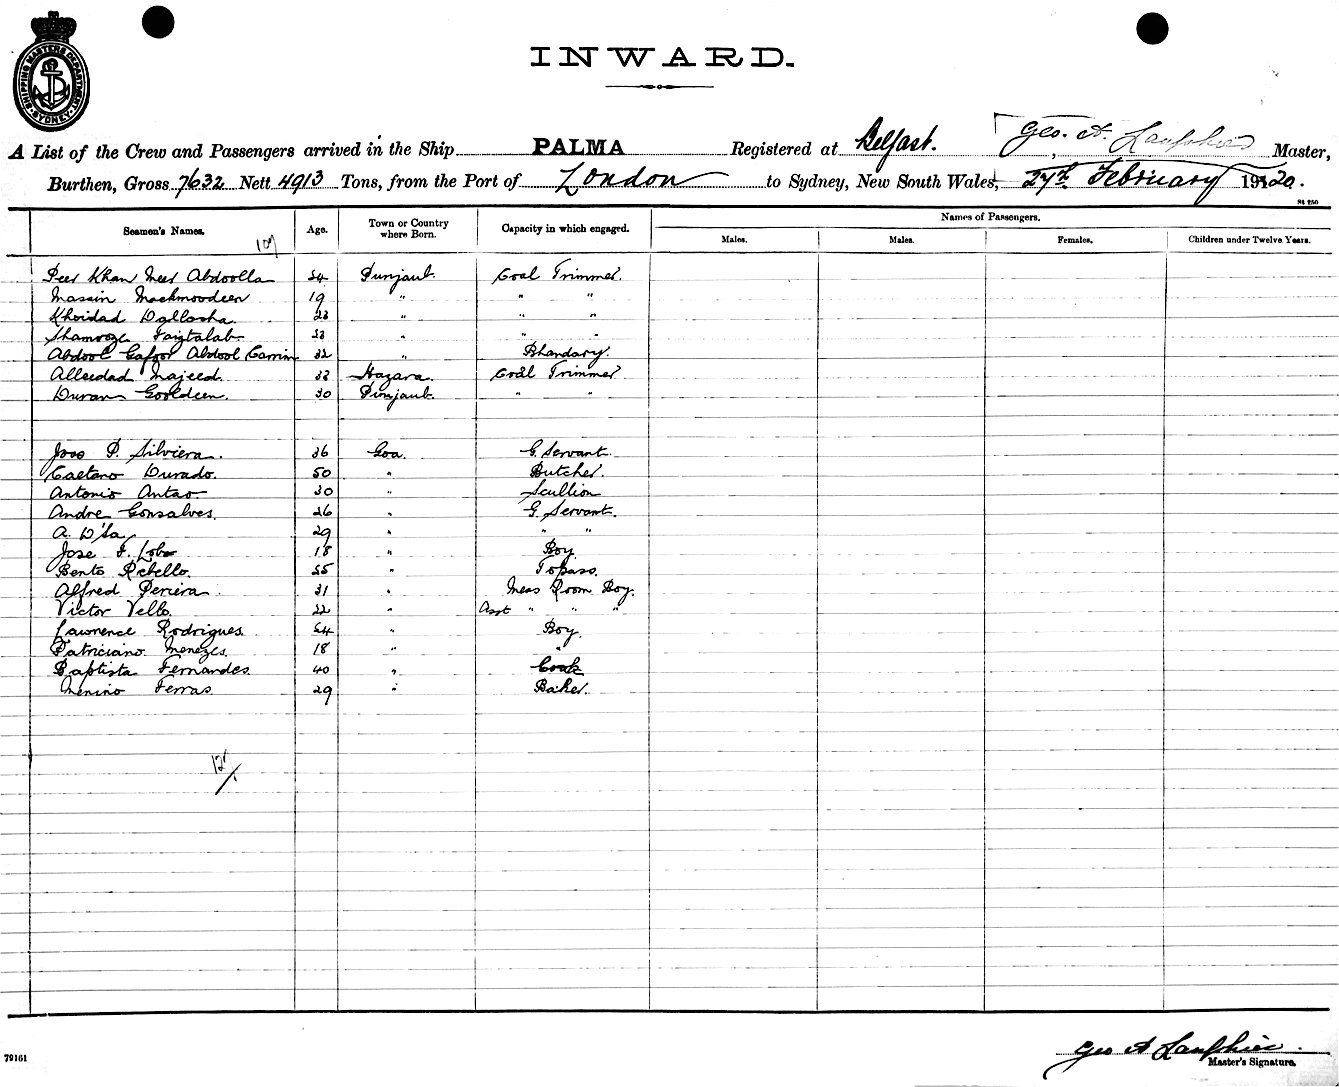 SHIPPING MASTERS DEPARTMENT SYDNEY
INWARD.
A List of the Crew and Passengers arrived in the Ship PALMA Registered at Belfast. Geo. A. Master,
Burthen, Gross 7632 Nett 4913 Tons, from the Port of London to Sydney, New South Wales, 27th February 1920.
S4 250
Names of Passengers.
Seamen's Names. Age. Town or Country where Born. Capacity in which engaged. Males. Males. Females. Children under Twelve Years.
Peer Khan Meer Abdoolla 54 Punjaub Coal Trimmer.
Massin Mackmoodeen 19 " " "
Khoidad Dallasha. 23 " " "
Shamrooze Faiztalab. 23 " " "
Abdool Gafoor Abdool Carrim 32 " Bhandary.
Alleedad Majeed. 32 Hazara. Coal Trimmer
Duran Gooldeen. 30 Punjaub. " "
Jose P. Silviera. 36 Goa. G. Servant.
Caetano Durado. 50 " Butcher.
Antonio Antao 30 " Scullion
Andre Gonsalves. 26 " G. Servant.
A. D'Sa 29 " " "
Jose F. Lobo 18 " Boy
Bento Rebello. 55 " Topass.
Alfred Periera 31 " Mess Room Boy.
Victor Vello. 22 " Asst " " "
Lawrence Rodrigues. 54 " Boy.
Patriciano Menezes. 18 " "
Baptista Fernandes. 40 " Cook
Menino Ferras 29 " Baker.
79161
Geo A
Master's Signature.